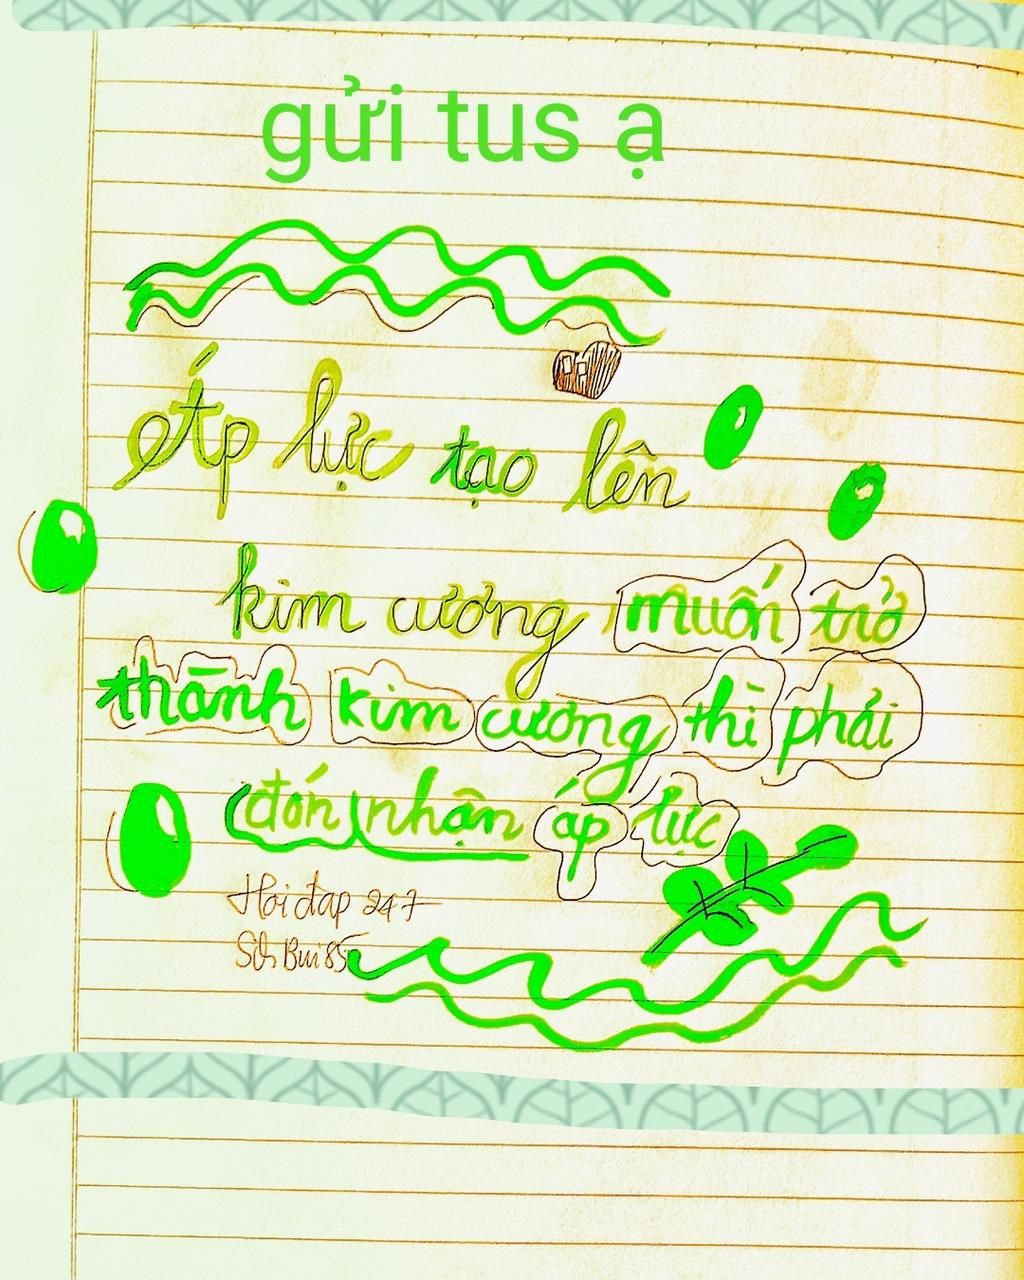 gửi tus ạ
Áp lực tạo lên
kim cương muốn trở
thành kim cương thì phải
đón nhận áp lực
Hoidap 247
Bui85